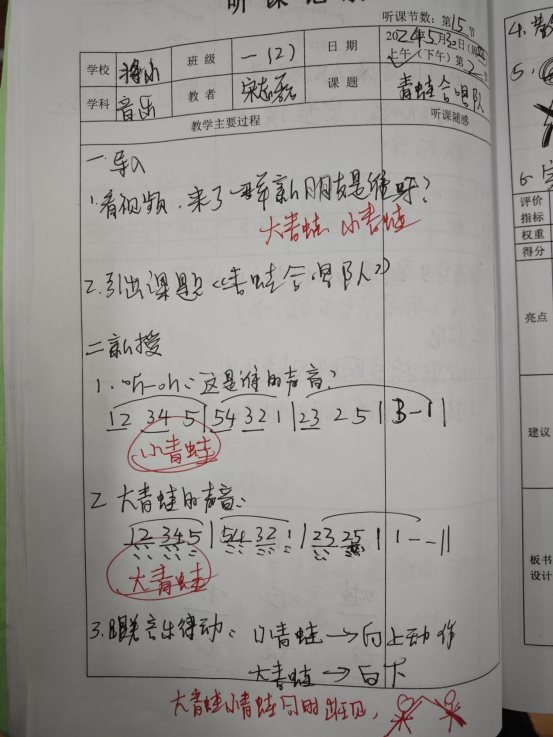 听课节数：第15节
学校 班级 一（2） 日期 2024年5月
上午（下午）第2节
学科 音乐 教者 课题 青蛙合唱队
教学主要过程 听课随感
一 导入
1.看视频，来了一群新朋友是谁呀？
大青蛙 小青蛙
2.引出课题《青蛙合唱队》
二 新授
1.听一听：这是谁的声音？
12 34 5|54 32 1|23 2 5|3-1||
小青蛙
2 大青蛙的声音：
12 34 5|54 32 1|23 25 1|1--||
大青蛙
3.跟音乐律动： 小青蛙→向上动作
大青蛙→向下
大青蛙小青蛙同时出现，
4.
5.
6.
评价指标
权重
得分
亮点
建议
板书设计